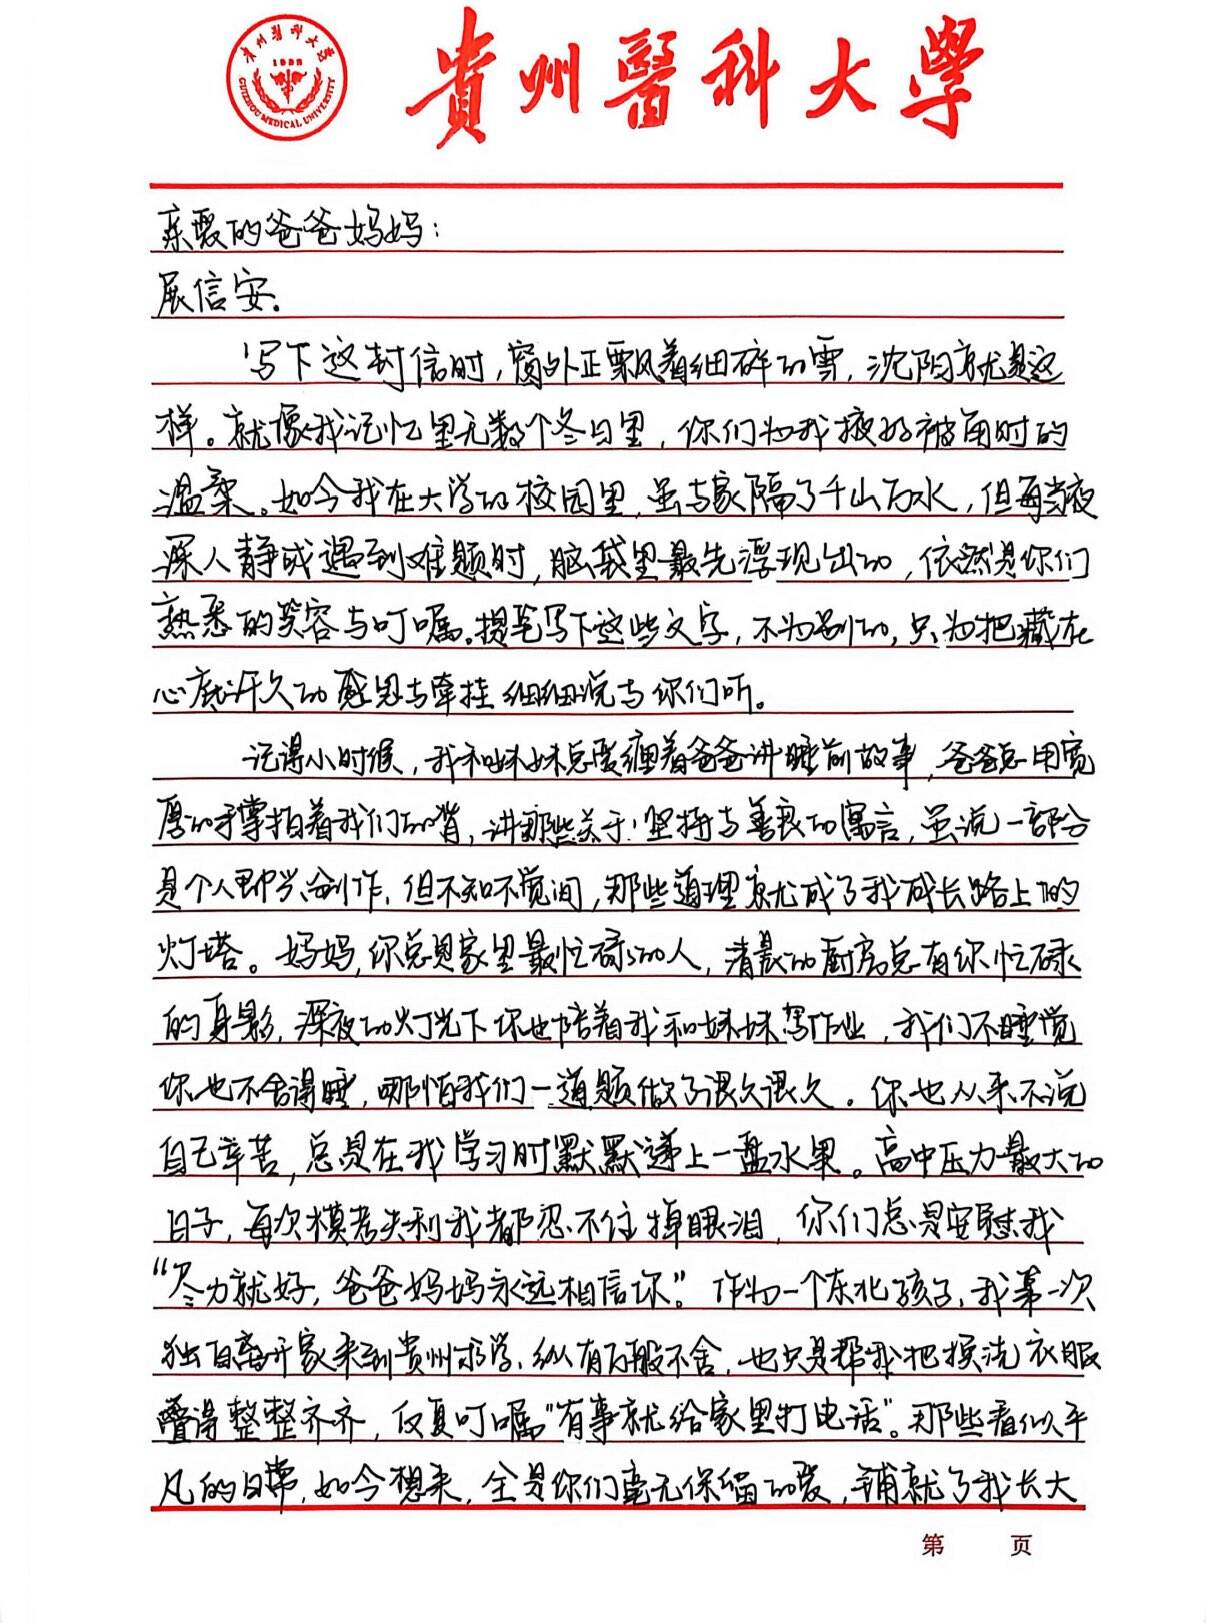 贵州医科大学
1938
GUIZHOU MEDICAL UNIVERSITY
貴州醫科大學
亲爱的爸爸妈妈：
展信安.
写下这封信时，窗外正飘着细碎的雪，沈阳就是这
样。就像我记忆里无数个冬日里，你们为我掖好被角时的
温柔。如今我在大学的校园里，虽与家隔了千山万水，但每当夜
深人静或遇到难题时，脑袋里最先浮现出的，依然是你们
熟悉的笑容与叮嘱。提笔写下这些文字，不为别的，只为把藏在
心底许久的感恩与牵挂细细说与你们听。
记得小时候，我和妹妹总爱缠着爸爸讲睡前故事，爸爸总用宽
厚的手掌拍着我们的背，讲那些关于坚持与善良的寓言，虽说一部分
是个人即兴创作，但不知不觉间，那些道理就成了我成长路上的
灯塔。妈妈，你总是家里最忙碌的人，清晨的厨房总有你忙碌
的身影，深夜的灯光下你也陪着我和妹妹写作业，我们不睡觉
你也不舍得睡，哪怕我们一道题做了很久很久。你也从来不说
自己辛苦，总是在我学习时默默递上一盘水果。高中压力最大的
日子，每次模考失利我都忍不住掉眼泪，你们总是安慰我
“尽力就好，爸爸妈妈永远相信你”。作为一个东北孩子，我第一次
独自离开家来到贵州求学，纵有万般不舍，也只是帮我把换洗衣服
叠得整整齐齐，反复叮嘱“有事就给家里打电话”。那些看似平
凡的日常，如今想来，全是你们毫无保留的爱，铺就了我长大
第 页